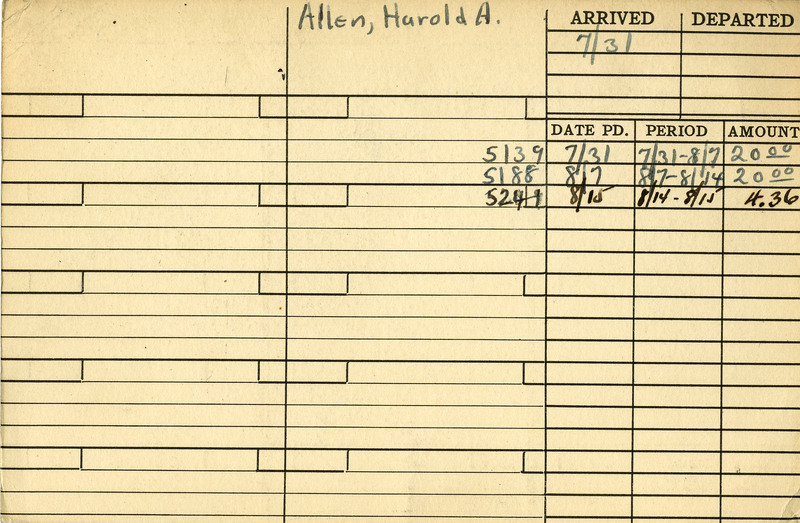 Allen, Harold A.
ARRIVED DEPARTED
7/31
DATE PD. PERIOD AMOUNT
5139 7/31 7/31-8/7 20 00
5188 8/7 8/7-8/14 20 00
8/15 8/14-8/15 4.36